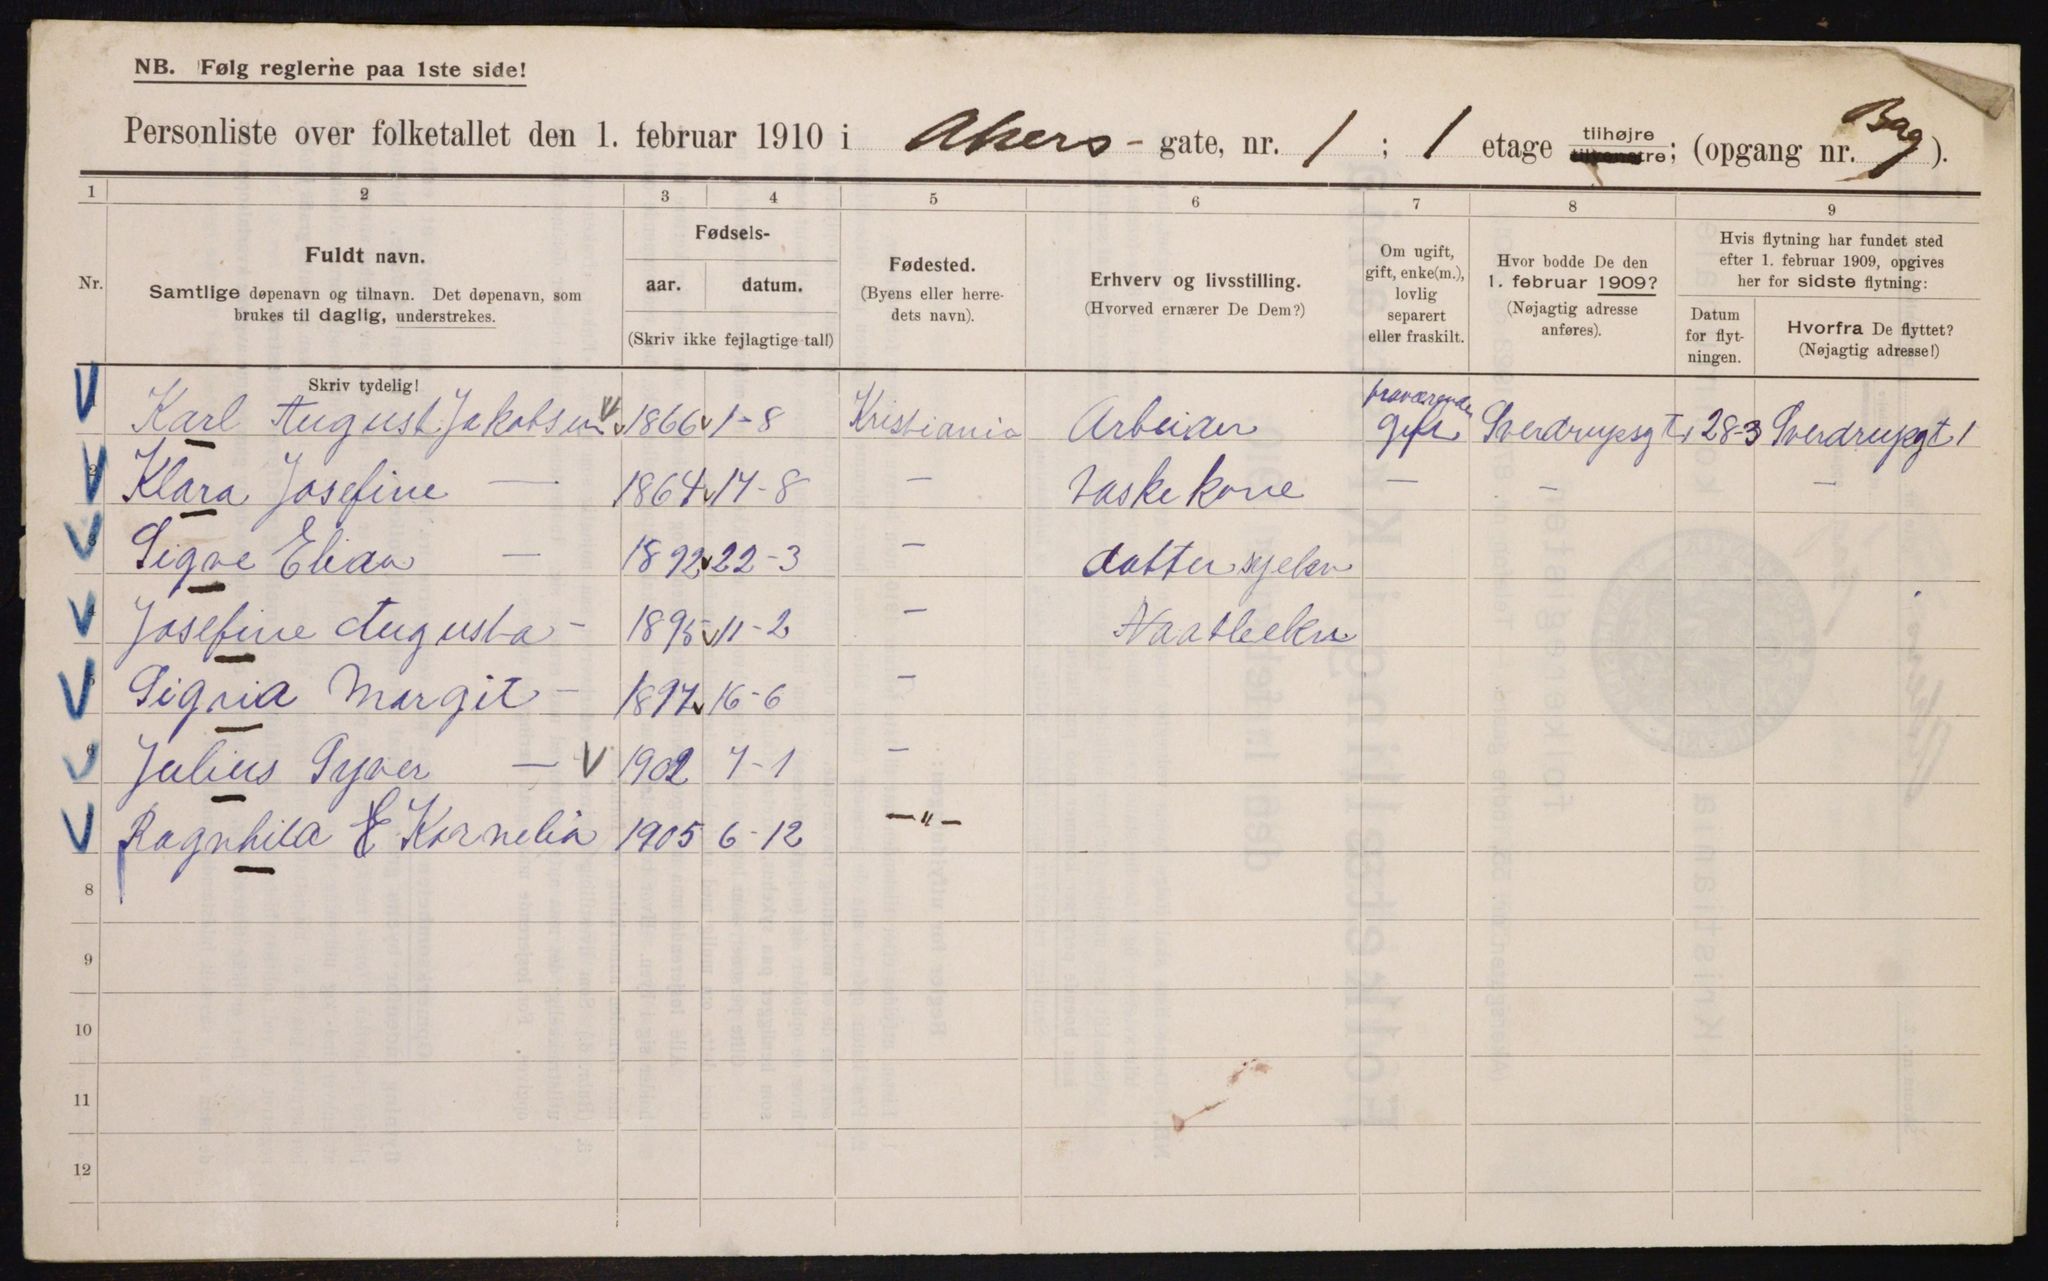 NB. Følg reglerne paa 1ste side!
Personliste over folketallet den 1. februar 1910 i Akers- gate, nr. 1 ; 1 etage tilhøjre tilvenstre; (opgang nr. Bag).
1 2 3 4 5 6 7 8 9
Nr.
Fuldt navn.
Samtlige døpenavn og tilnavn. Det døpenavn, som
brukes til daglig, understrekes.
Skriv tydelig!
Fødsels-
aar. datum.
(Skriv ikke fejlagtige tal!)
Fødested.
(Byens eller herre-
dets navn).
Erhverv og livsstilling.
(Hvorved ernærer De Dem?)
Om ugift,
gift, enke(m.),
lovlig
separert
eller fraskilt.
Hvor bodde De den
1. februar 1909?
(Nøjagtig adresse
anføres).
Hvis flytning har fundet sted
efter 1. februar 1909, opgives
her for sidste flytning:
Datum
for flyt-
ningen.
Hvorfra De flyttet?
(Nøjagtig adresse!)
fraværende
1 Karl August Jakobsen 1866 1-8 Kristiania Arbeider gift Sverdrupsgt 1 28-3 Sverdrupgt 1
2 Klara Josefine — 1864 17-8 — Vaskekone — — —
3 Signe — 1892 22-3 — datter
4 Josefine Augusta - 1895 11-2 —
5 Margit - 1897 16-6 —
6 Julius Syver — 1902 7-1 —
Ragnhild E Kornelia 1905 6-12 —"—
8
9
10
11
12